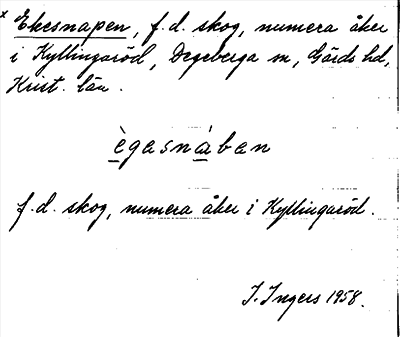 x Ekesnapen, f.d. skog, numera åker
i Kyllingaröd, Degeberga sn, Gärds hd,
Krist. län.
ègasnàban
f.d. skog, numera åker i Kyllingaröd.
I. Ingers 1958.